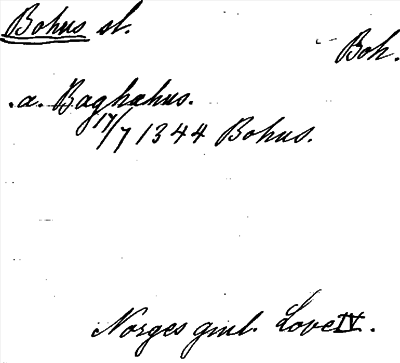 Bohus sl.
Boh.
.a. Baghahus.
17/7 1344 Bohus.
Norges gml. Love IV.